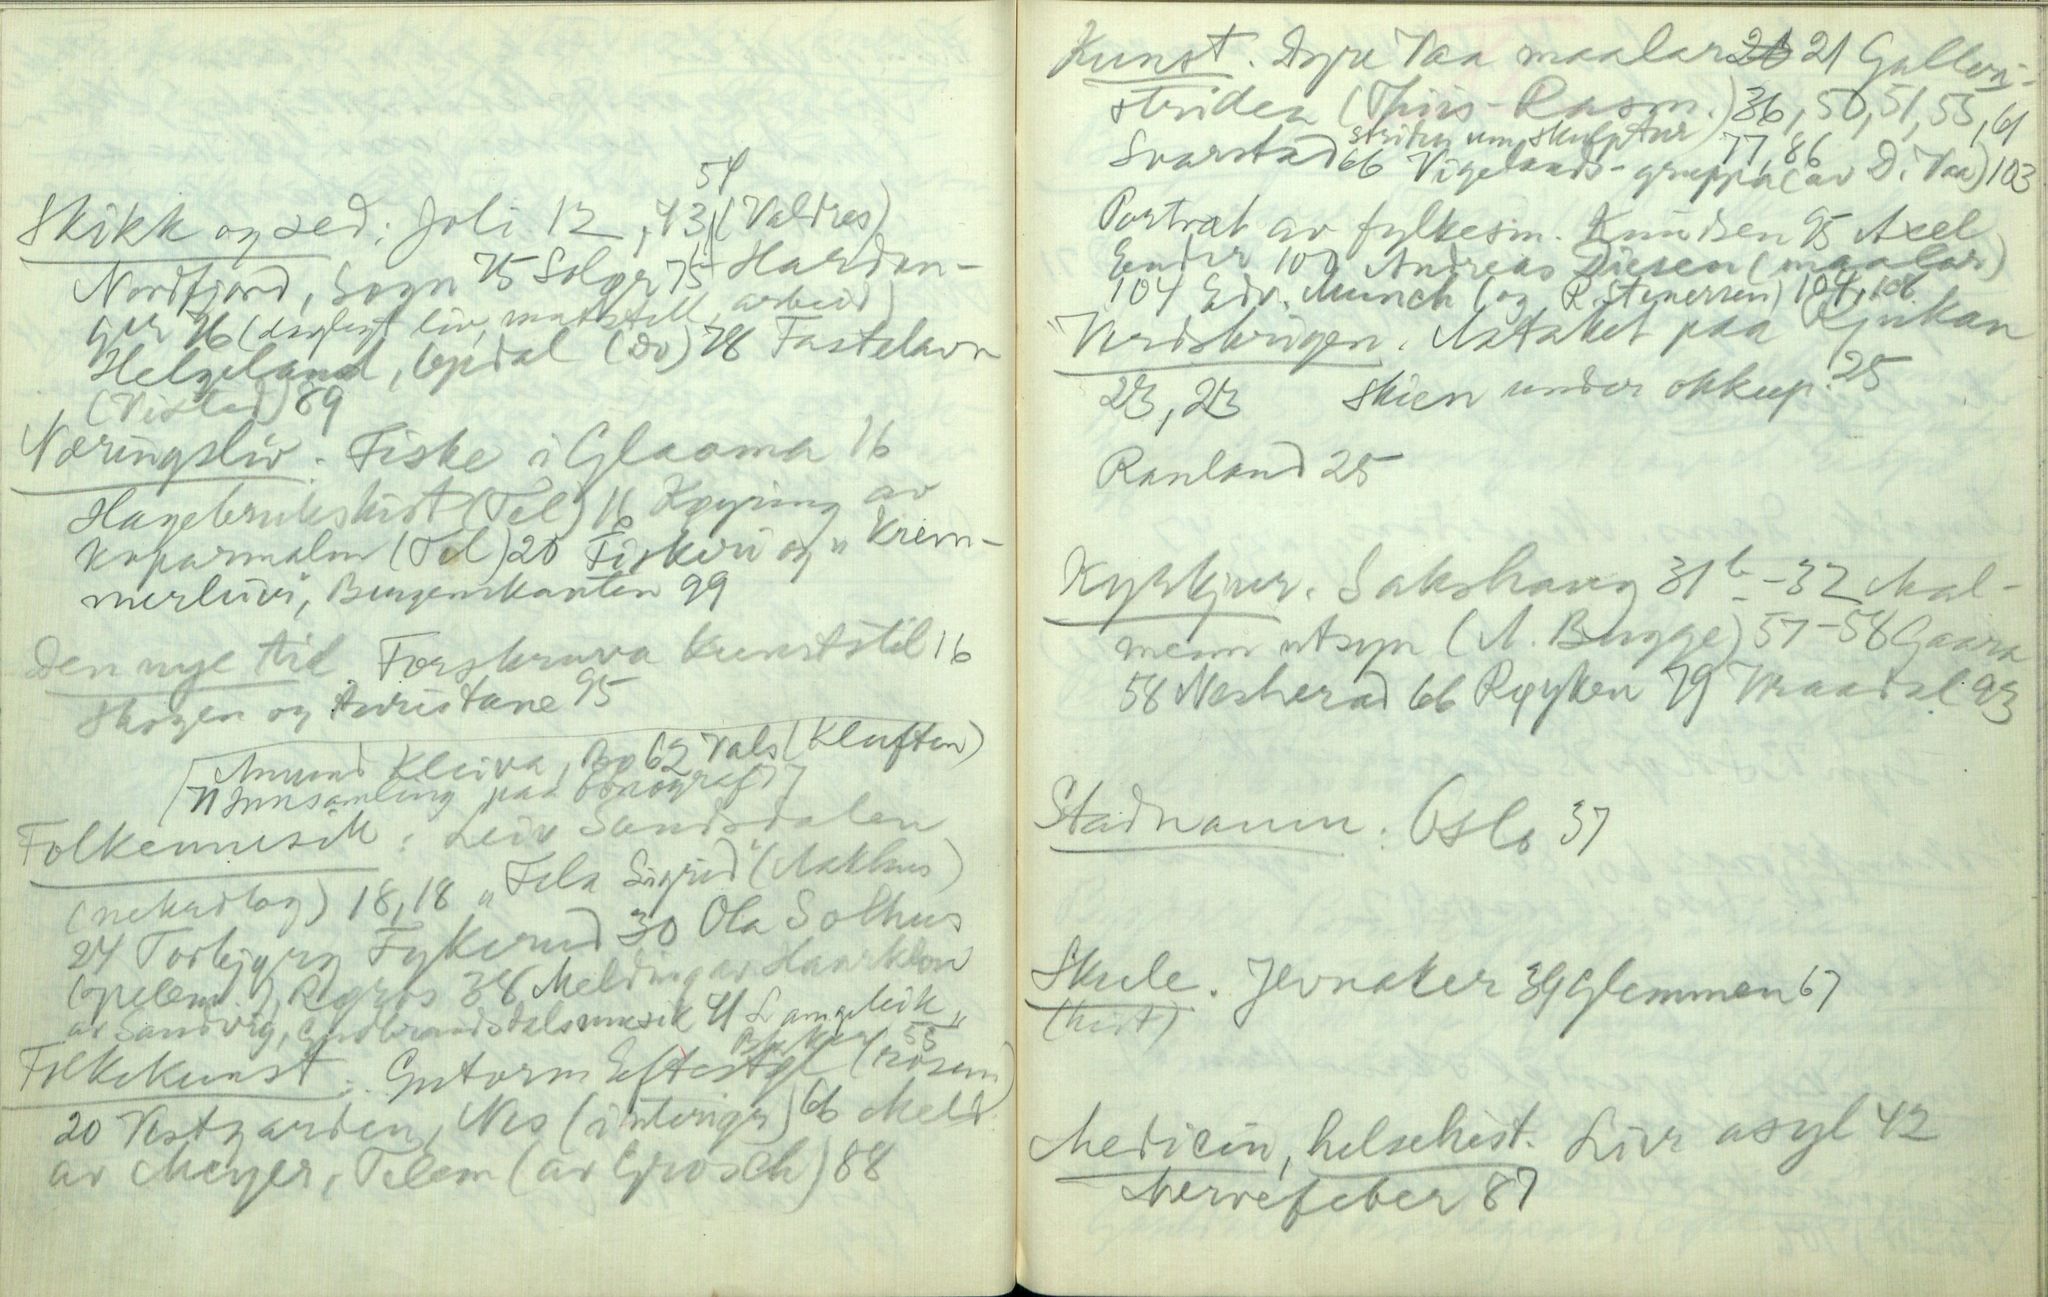 54
Skikk og sed: Joli 12, 43 (Valdres)
Nordfjord, Sogn 75 Solør 75 Hardan-
ger 76 (dagligt liv, matstell, arbeid)
Helgeland, Opdal (Do) 78 Fastelavn
(Vistad) 89
Næringsliv. Fiske i Glaama 16
Hagebrukshist (Tel) 16 Køyring av
koparmalm (Tel) 20 Fiskeri og "Krem-
merluvi", Bergenskanten 99
Den nye tid Forskruva kunststil 16
Skogen og turistane 95
Amund Kleiva, Bø 62 Vals (Kluften)
71 Innsamling paa fonograf 77
Folkemusik: Leiv Sandsdalen
(nekrolog) 18, 18 "Fela Sigrid" (Aakhus)
24 Torbjørn Fykerud 30 Ola Solhus
(spelem.), Røros 38 Melding av Haarklou
av Sandvig, Gudbrandsdalsmusik 41 Langeleik
55
Folkekunst: Gutorm Eftestøl (rosem)
20 Vestgarden, Nes (interiør) 66 Meld.
av Meyer, Telem (av Grosch) 88
Kunst. Dyre Vaa maalar 20 21 Galleri-
striden (Thiis-Rasm.) 36, 50, 51, 53, 61
striden um skulptur 77, 86
Svarstad 66 Vigelands-gruppa (av D. Vaa) 103
Portræt av fylkesm. Knudsen 95 Axel
Ender 101 Andreas Diesen (maalar)
104 Edv. Munch (og R. Stenersen) 104, 106
Verdskrigen. Aataket paa Rjukan
23, 23 Skien under okkup. 25
Rauland 25
Kyrkjur. Sakshaug 31b-32 Aal-
menn utsyn (A. Bugge) 57-58 Gaara
58 Nesherad 66 Røyken 79 Vraadal 93
Stadnamn. Oslo 37
Skule. Jevnaker 39 Glemmen 67
(hist)
Medicin, helsehist. Lier asyl 42
Nervefeber 87